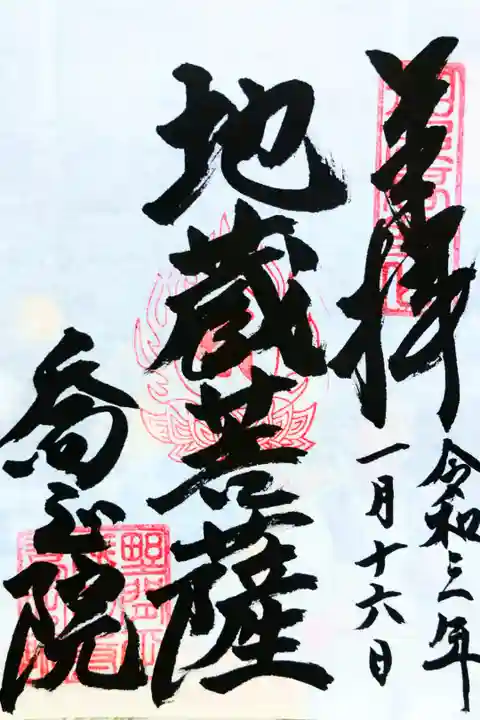 奉拝
令和三年
一月十六日
地蔵菩薩
喬正院